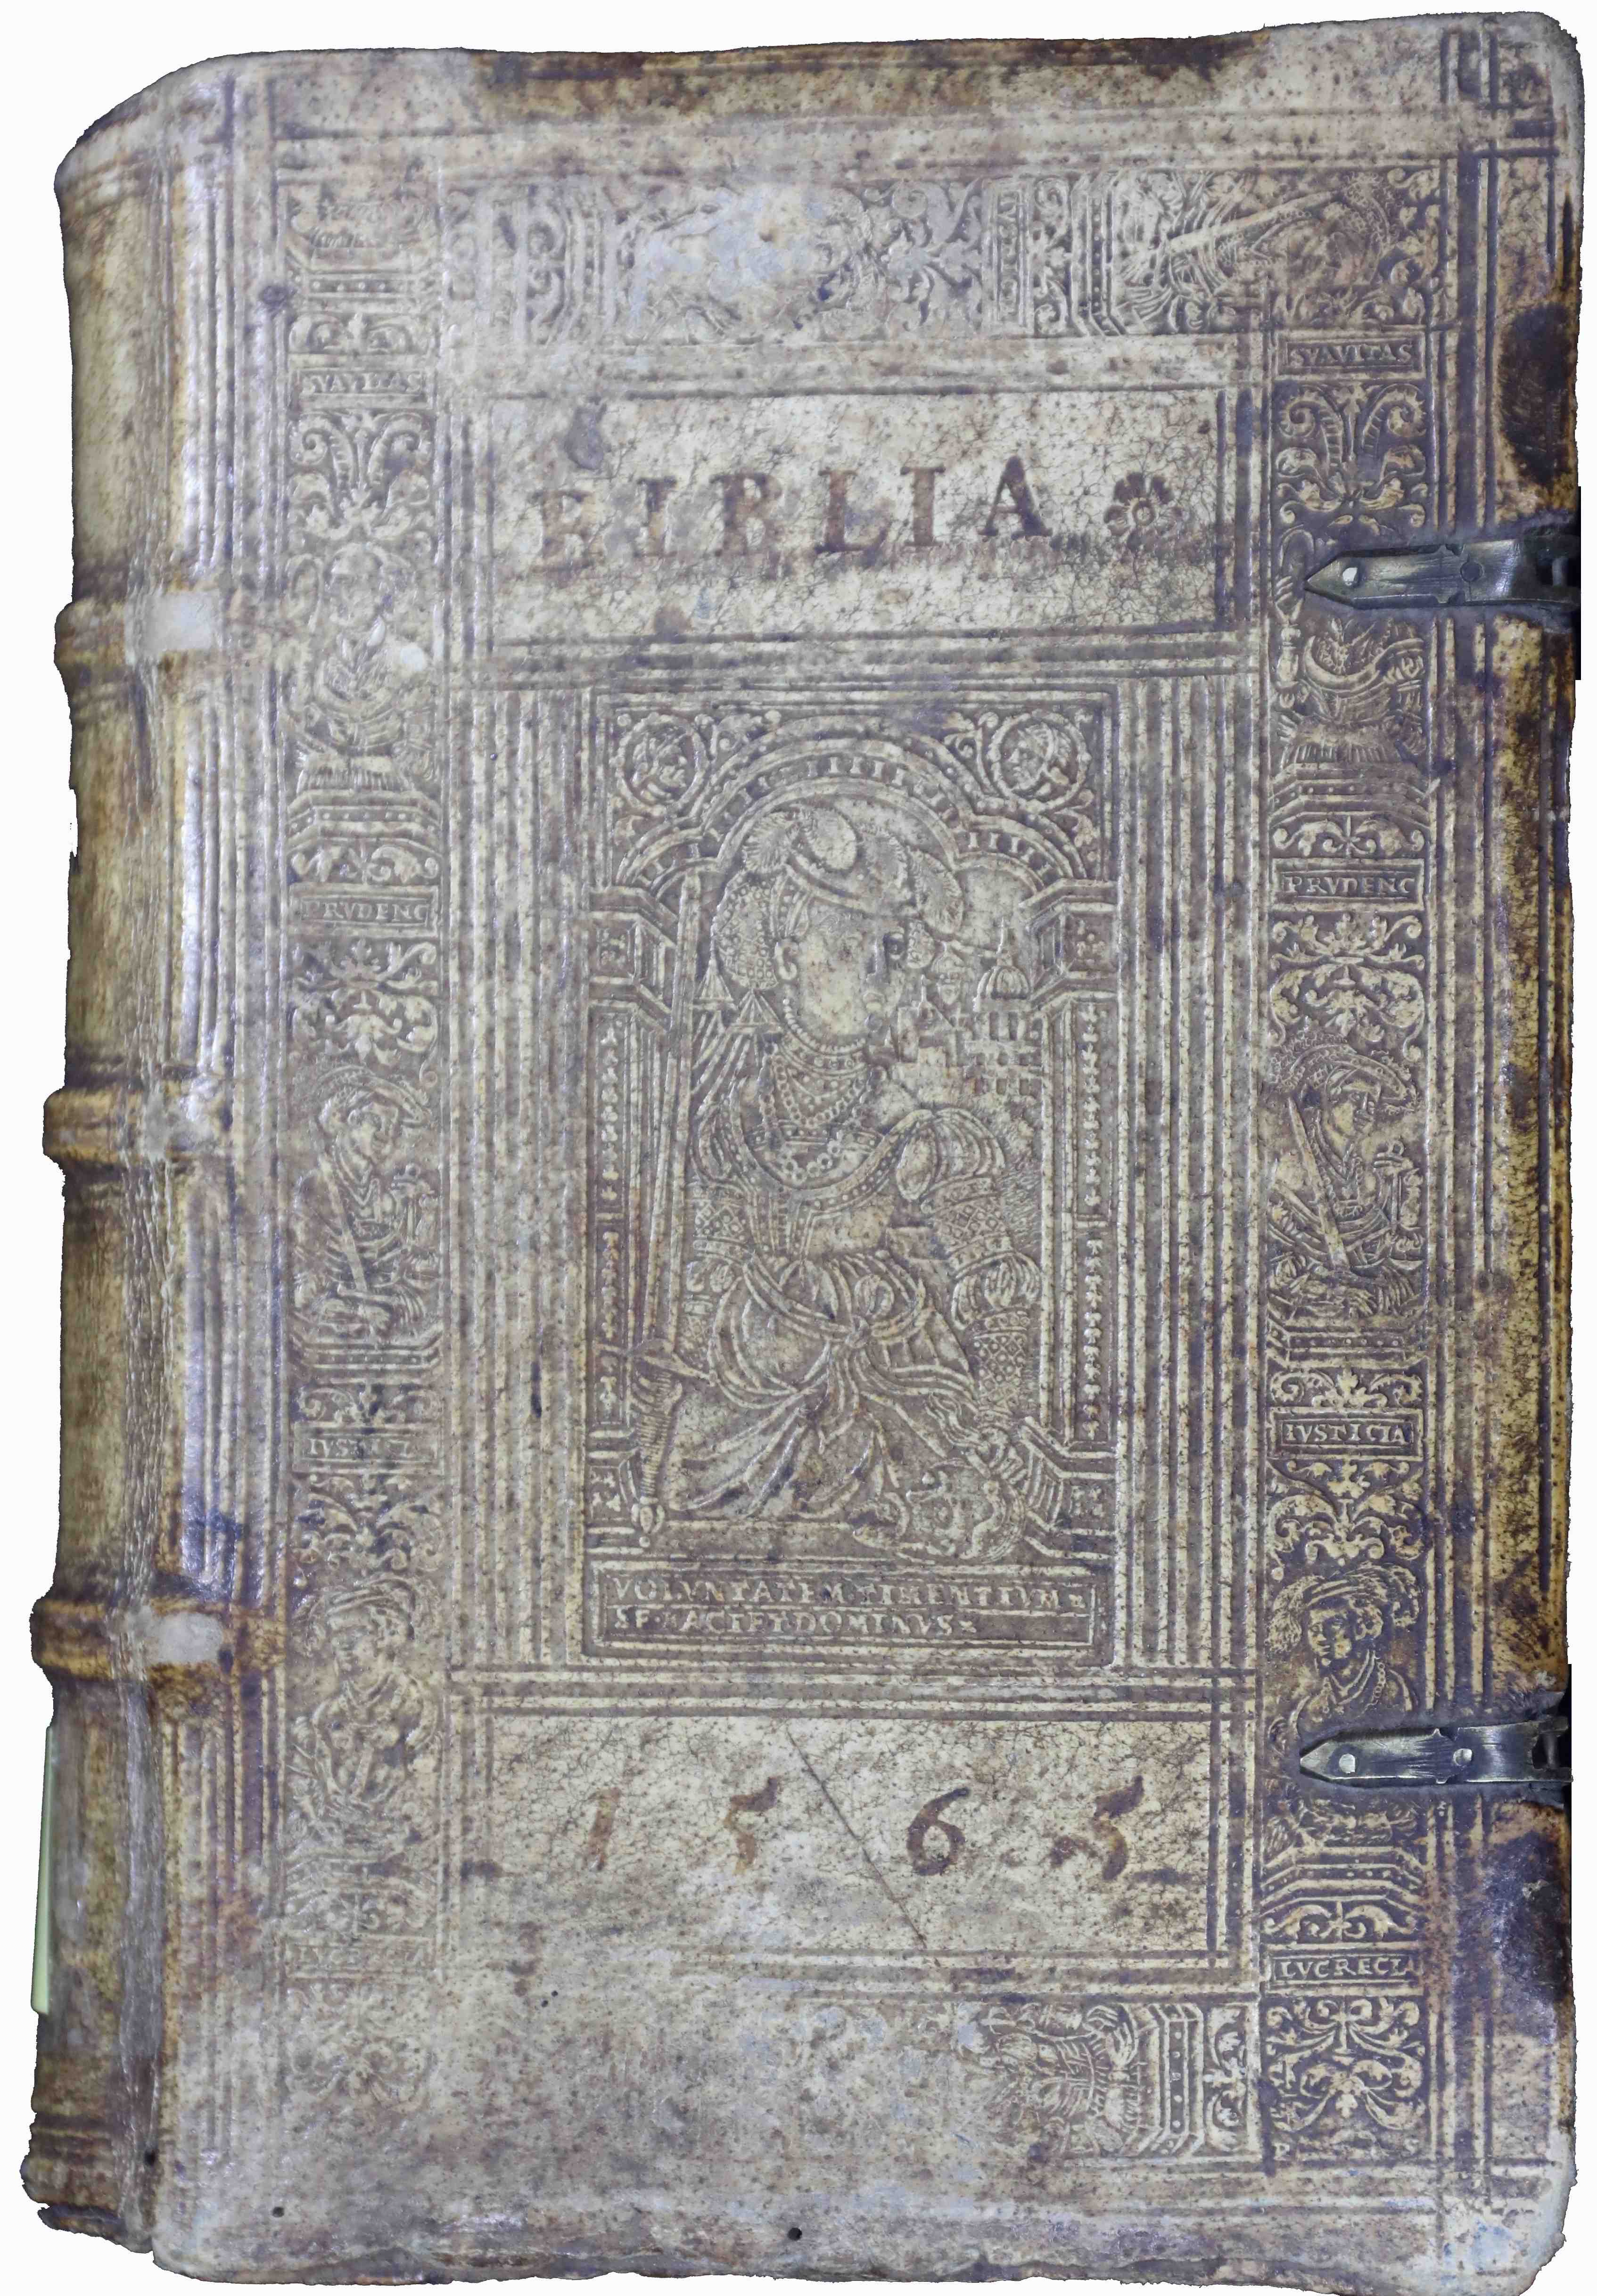 SVAVITAS
SVAVITAS
BIBLIA
PRVDENC
PRVDENC
IVSTICIA
IVSTICIA
VOLVNTATEM·TIMENTIVM
SE·FACIET·DOMINVS
1565
LVCRECIA
LVCRECI